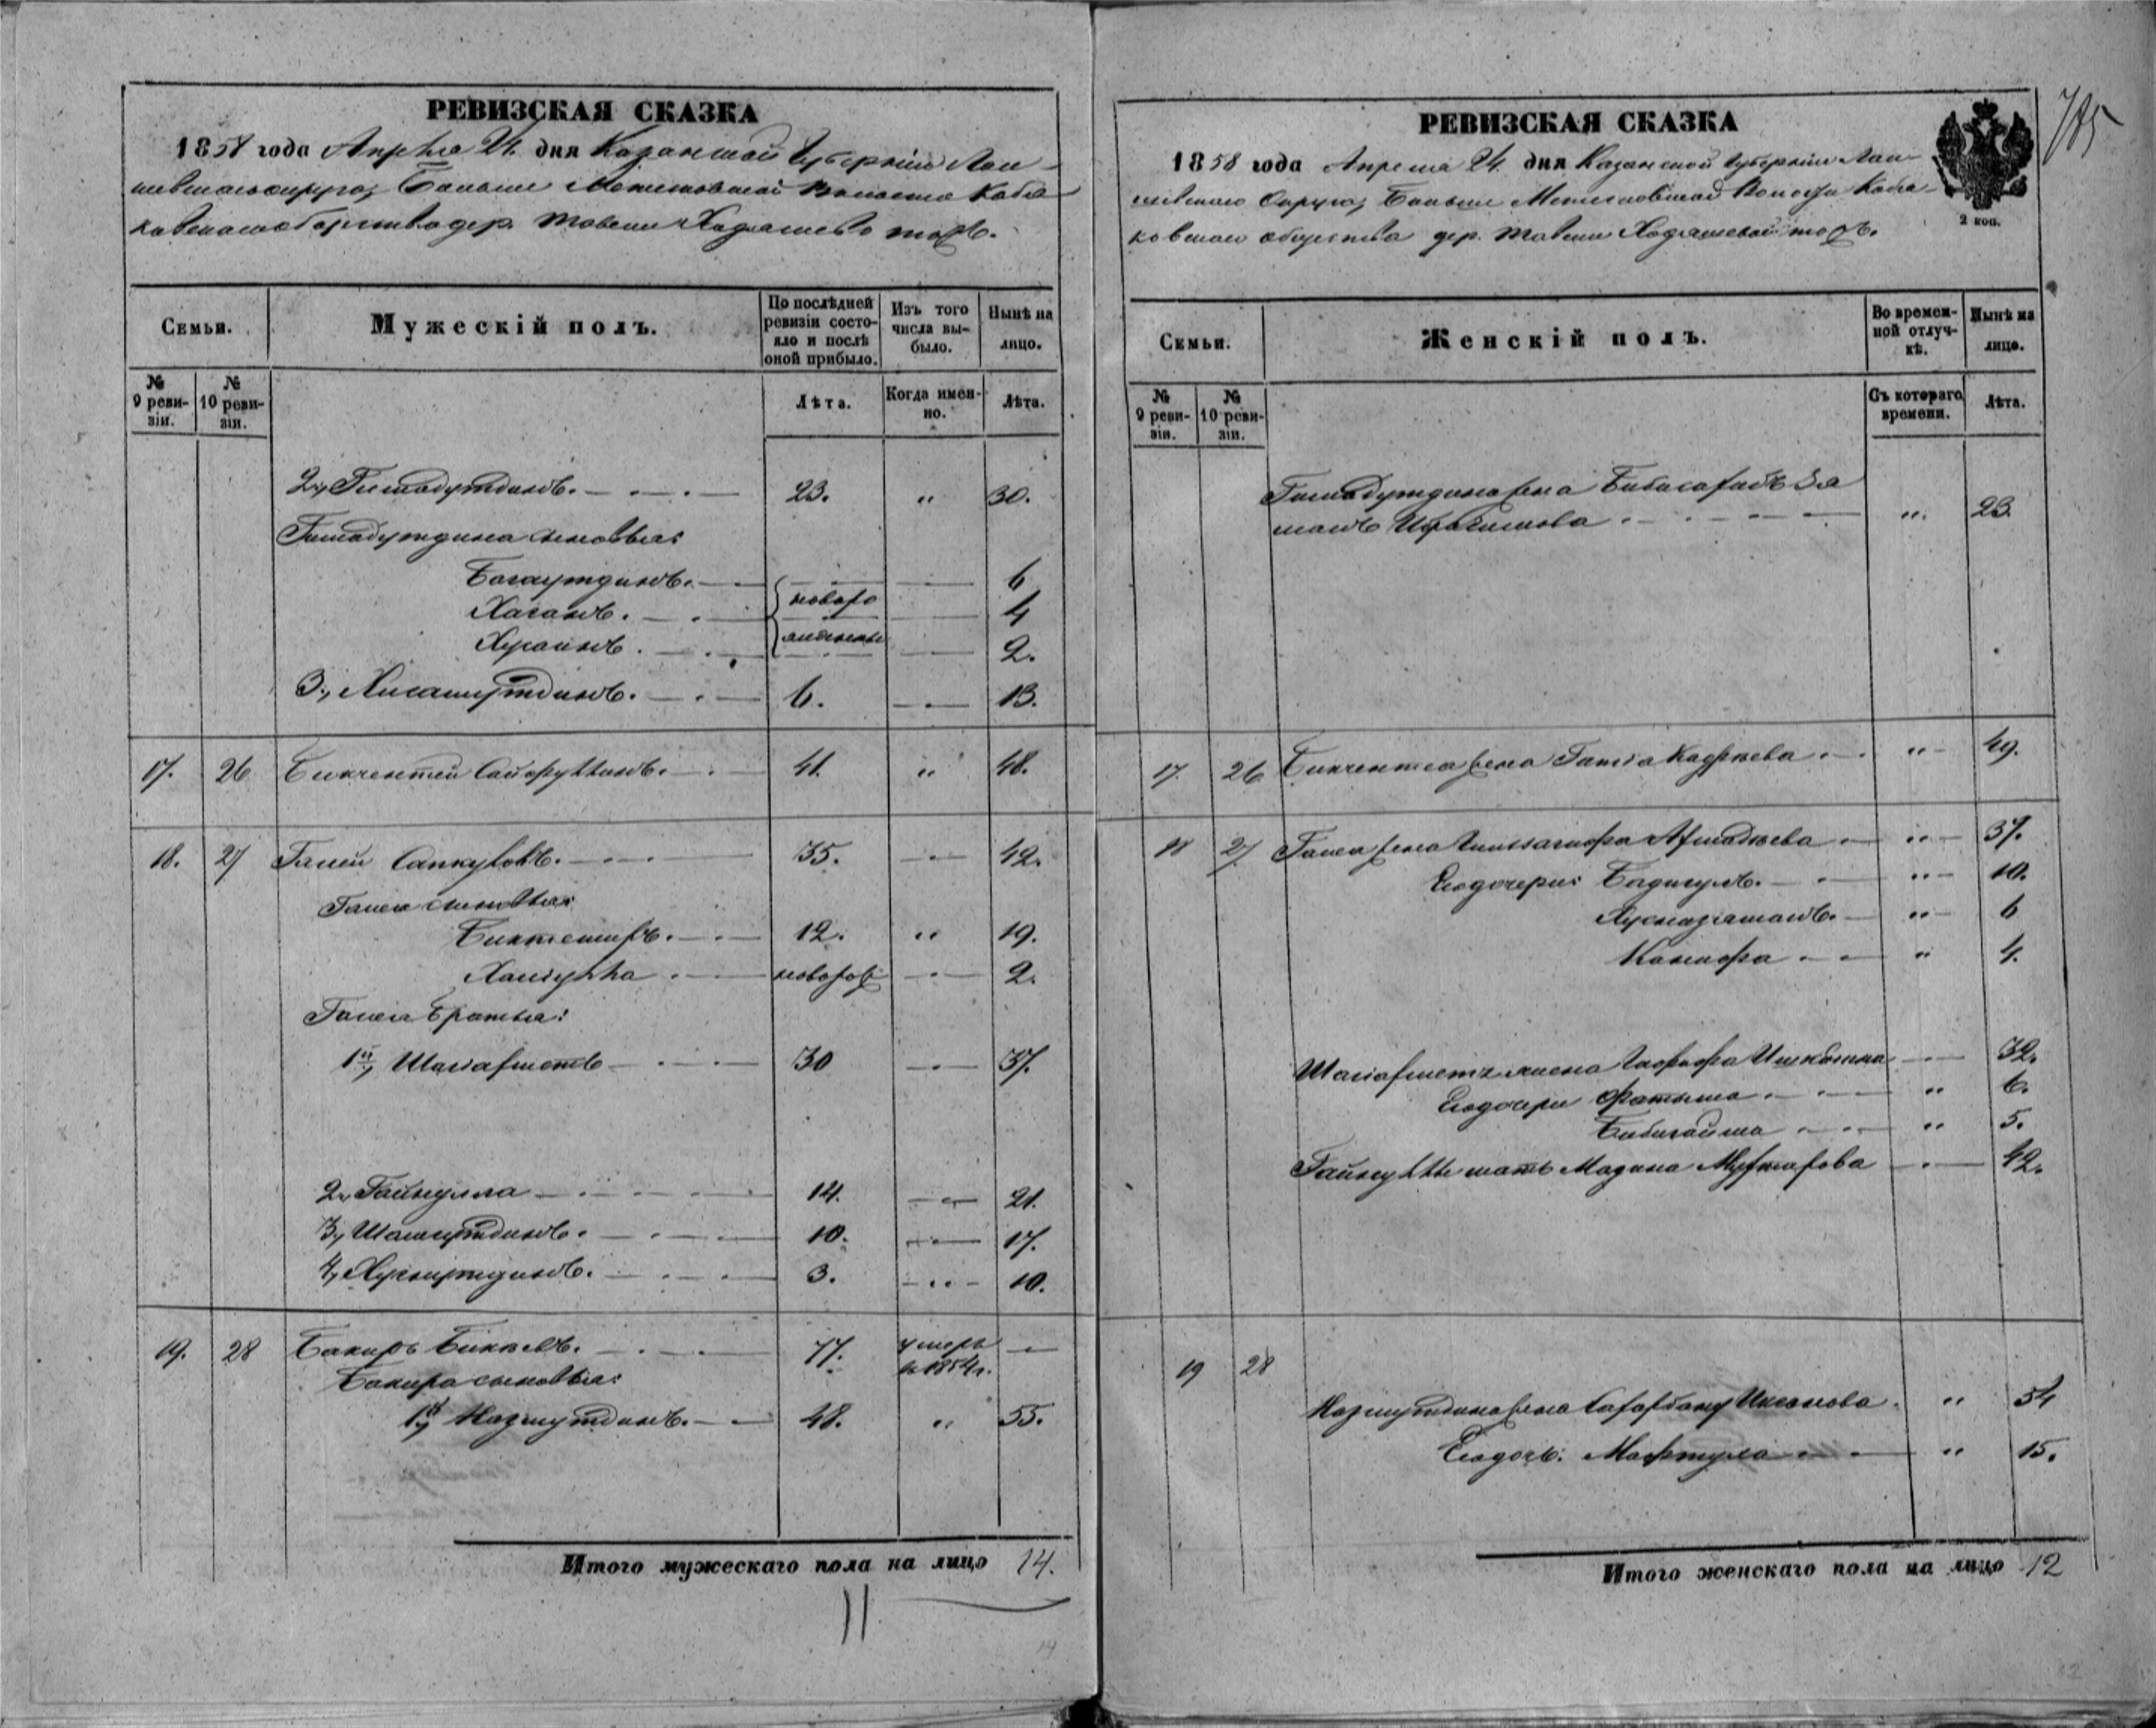 РЕВИЗСКАЯ СКАЗКА
1858 года Апреля 24 дня Казанской Губернии Лаи-
шевскаго округа, Больше Метесковской Волости Кобя-
ковскаго общества дер. Тавели Ходяшево тожъ.
Семьи.
Мужескій полъ.
По послѣдней ревизіи состо-яло и послѣ оной прибыло.
Изъ того числа вы-было.
Нынѣ на лицо.
№ 9 реви-зіи.
№ 10 реви-зіи.
Лѣта.
Когда имен-но.
Лѣта.
2, Гимадутдинъ. 23. " 30.
Гимадутдина сыновья:
Багаутдинъ. 6
Хасанъ. новоро 4
Хусаинъ. жденные 2.
3, Хисамутдинъ. 6. 13.
17. 26 Бикчентей Сайфуллинъ. 41. " 48.
18. 27 Галей Сапкуловъ. 35. 42.
Галея сыновья:
Биктемиръ. 12. " 19.
Халиулла новорож 2.
Галея братья:
1й, Шагіахметъ 30 37.
2, Гайнулла 14. 21.
3, Шамсутдинъ. 10. 17.
4, Хуснутдинъ. 3. 10.
19. 28 Бакиръ Бикѣевъ. 77. умеръ в 1854 г.
Бакира сыновья:
1й, Назмутдинъ. 48. " 55.
Итого мужескаго пола на лицо 14.
11
РЕВИЗСКАЯ СКАЗКА
785
1858 года Апреля 24 дня Казанской Губерніи Лаи-
шевскаго Округа, Больше Метесковской Волости Кобя-
ковскаго общества дер. Тавели Ходяшевой тожъ.
2 коп.
Семьи.
Женскій полъ.
Во времен-ной отлуч-кѣ.
Нынѣ на лицо.
№ 9 реви-зіи.
№ 10 реви-зіи.
Съ котораго времени.
Лѣта.
Гимадутдина жена Бибисарвъ За
маль Ибрагимова " 23.
17. 26 Бикчентея жена Галіа Кадрѣева " 49.
18 27 Галея жена Ахмадѣева " 37.
Его дочери: Бадигулъ. " 10.
Хуснизямалъ. " 6
Камифа " 4.
Шагіахмета жена 32.
Его дочери Фатыма " 6.
Бибигайша " 5.
Гайнуллы мать Мадина Мухтарова 42.
19 28
Назмутдина жена Сафарбану Ихсанова. " 54
Его дочь: Мафтуха " 15.
Итого женскаго пола на лицо 12